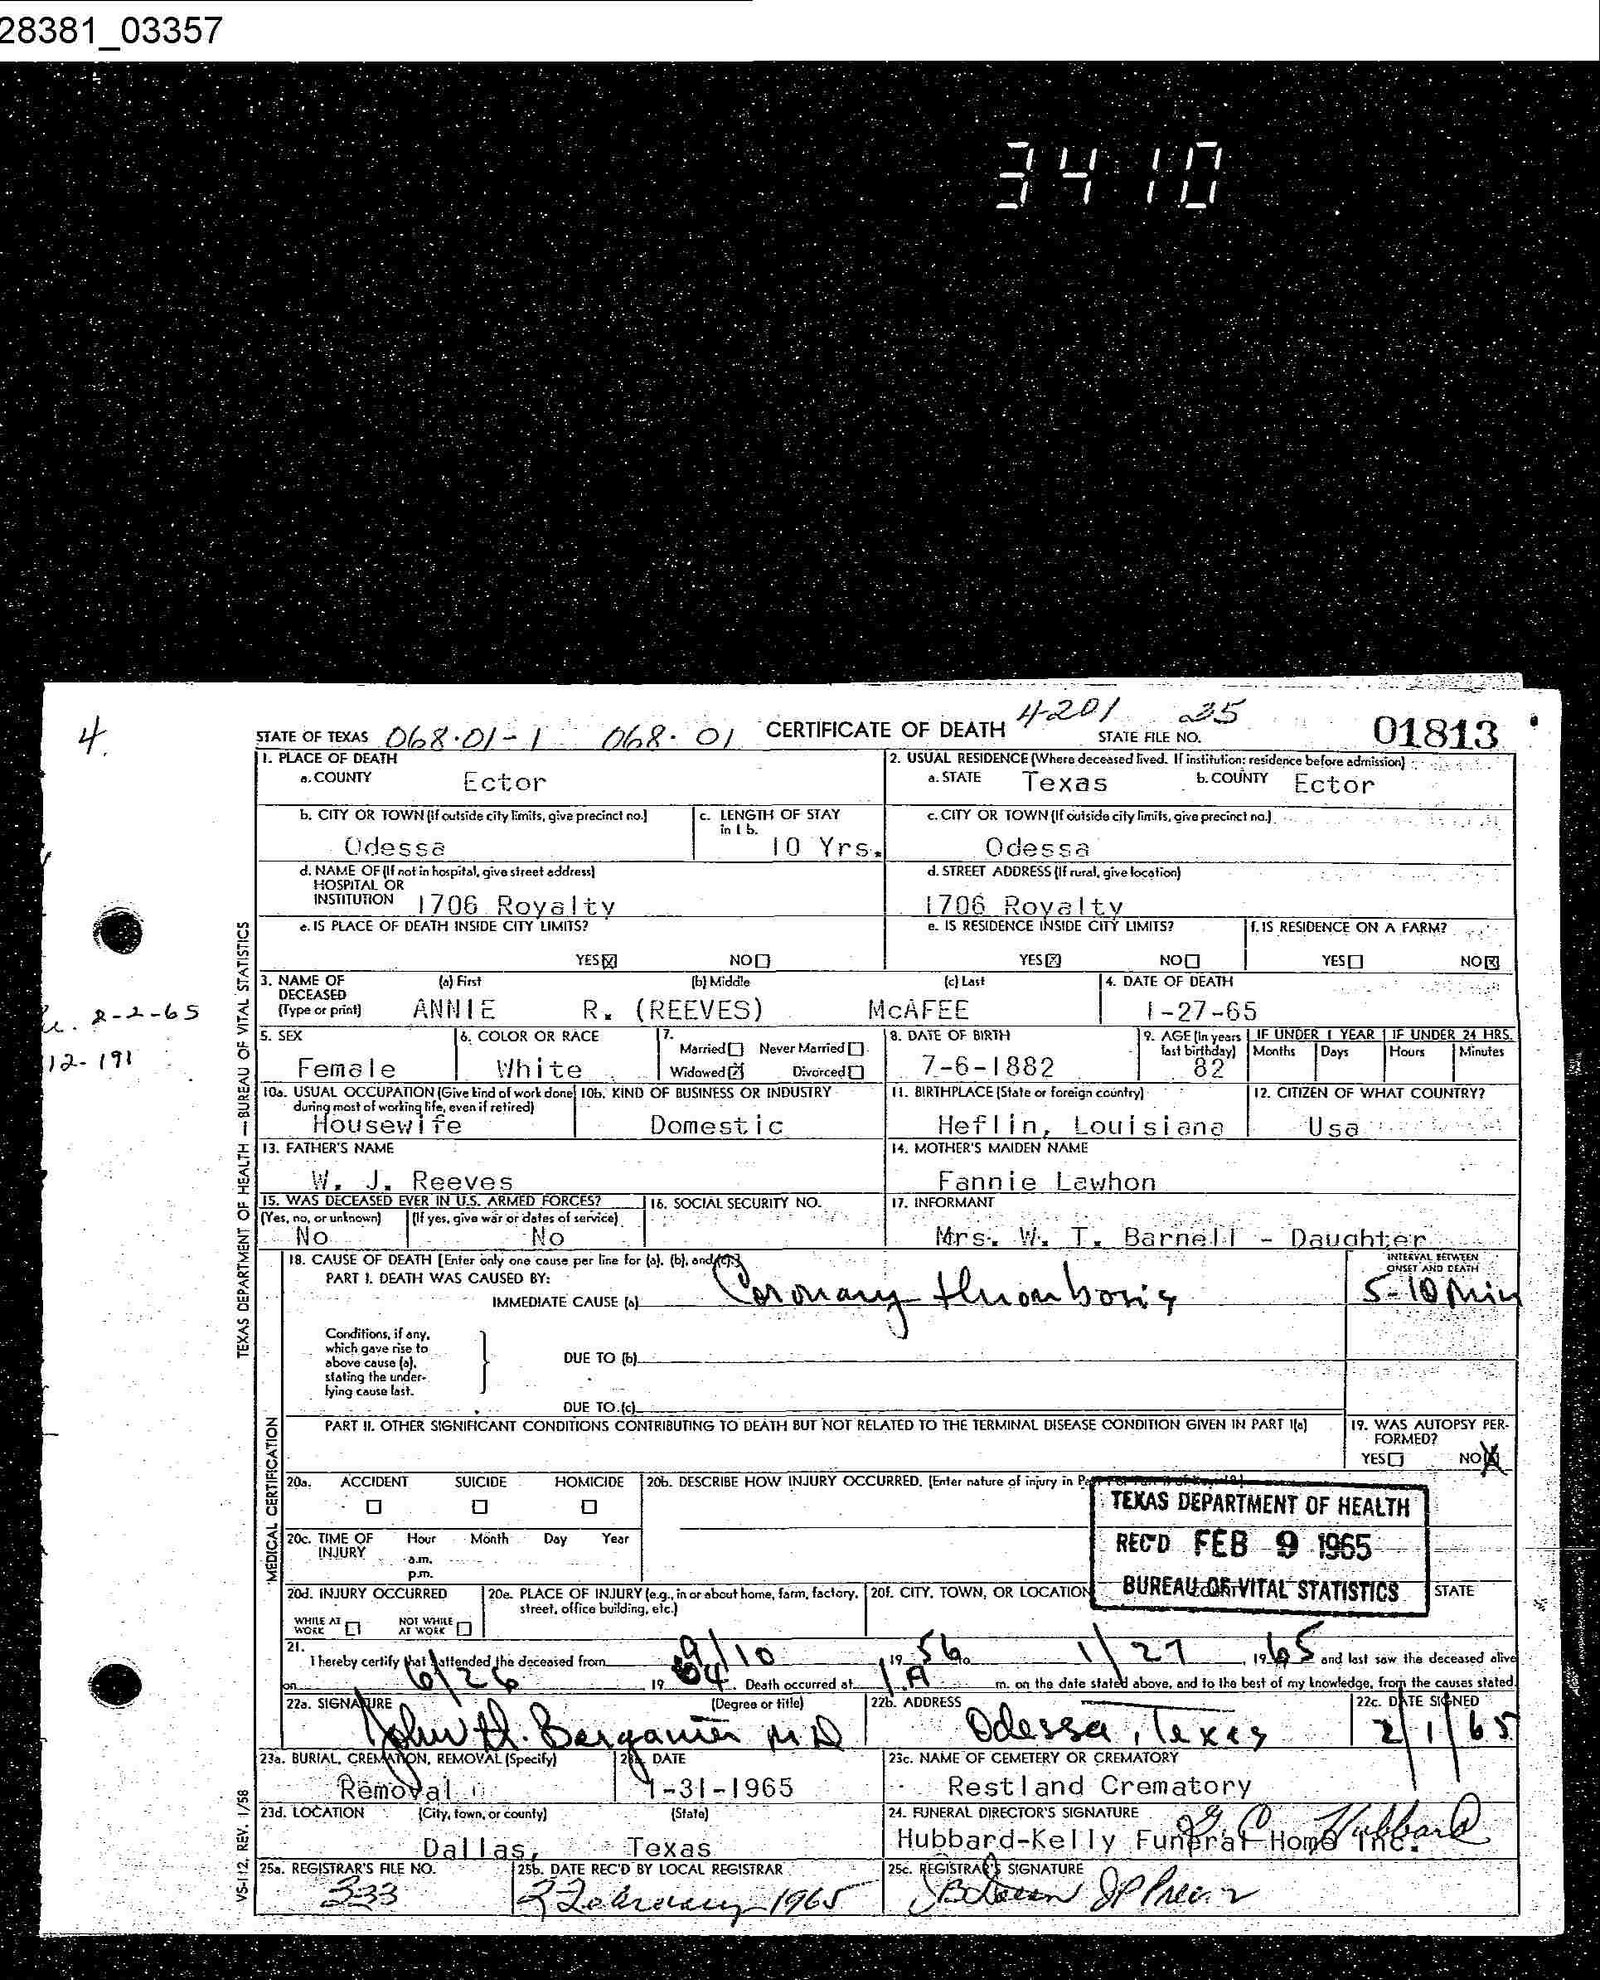 28381_03357
3410
4.
STATE OF TEXAS 068.01-1 068.01 CERTIFICATE OF DEATH 4-201 35 STATE FILE NO. 01813
1. PLACE OF DEATH
a. COUNTY Ector
2. USUAL RESIDENCE (Where deceased lived. If institution: residence before admission)
a. STATE Texas b. COUNTY Ector
b. CITY OR TOWN (If outside city limits, give precinct no.)
Odessa
c. LENGTH OF STAY in 1 b.
10 Yrs.
c. CITY OR TOWN (If outside city limits, give precinct no.)
Odessa
d. NAME OF (If not in hospital, give street address)
HOSPITAL OR
INSTITUTION 1706 Royalty
d. STREET ADDRESS (If rural, give location)
1706 Royalty
e. IS PLACE OF DEATH INSIDE CITY LIMITS?
YES☒ NO☐
e. IS RESIDENCE INSIDE CITY LIMITS?
YES☒ NO☐
f. IS RESIDENCE ON A FARM?
YES☐ NO☒
3. NAME OF DECEASED (Type or print)
(a) First (b) Middle (c) Last
ANNIE R. (REEVES) McAFEE
4. DATE OF DEATH
1-27-65
8-2-65
12-191
5. SEX
Female
6. COLOR OR RACE
White
7.
Married☐ Never Married☐
Widowed☒ Divorced☐
8. DATE OF BIRTH
7-6-1882
9. AGE (In years last birthday)
82
IF UNDER 1 YEAR
Months Days
IF UNDER 24 HRS.
Hours Minutes
10a. USUAL OCCUPATION (Give kind of work done during most of working life, even if retired)
Housewife
10b. KIND OF BUSINESS OR INDUSTRY
Domestic
11. BIRTHPLACE (State or foreign country)
Heflin, Louisiana
12. CITIZEN OF WHAT COUNTRY?
Usa
13. FATHER'S NAME
W. J. Reeves
14. MOTHER'S MAIDEN NAME
Fannie Lawhon
15. WAS DECEASED EVER IN U.S. ARMED FORCES?
(Yes, no, or unknown) (If yes, give war or dates of service)
No No
16. SOCIAL SECURITY NO.
17. INFORMANT
Mrs. W. T. Barnell - Daughter
TEXAS DEPARTMENT OF HEALTH — BUREAU OF VITAL STATISTICS
MEDICAL CERTIFICATION
18. CAUSE OF DEATH [Enter only one cause per line for (a), (b), and (c).]
PART I. DEATH WAS CAUSED BY:
IMMEDIATE CAUSE (a) Coronary thrombosis
INTERVAL BETWEEN ONSET AND DEATH
5-10 Min
Conditions, if any,
which gave rise to
above cause (a),
stating the under-
lying cause last.
DUE TO (b)
DUE TO (c)
PART II. OTHER SIGNIFICANT CONDITIONS CONTRIBUTING TO DEATH BUT NOT RELATED TO THE TERMINAL DISEASE CONDITION GIVEN IN PART I(a)
19. WAS AUTOPSY PER-
FORMED?
YES☐ NO☒
20a. ACCIDENT SUICIDE HOMICIDE
☐ ☐ ☐
20b. DESCRIBE HOW INJURY OCCURRED. (Enter nature of injury in
20c. TIME OF INJURY
Hour Month Day Year
a.m.
p.m.
TEXAS DEPARTMENT OF HEALTH
REC'D FEB 9 1965
BUREAU OF VITAL STATISTICS
20d. INJURY OCCURRED
WHILE AT WORK ☐ NOT WHILE AT WORK ☐
20e. PLACE OF INJURY (e.g., in or about home, farm, factory, street, office building, etc.)
20f. CITY, TOWN, OR LOCATION STATE
21.
I hereby certify that I attended the deceased from 9/10, 1956 to 1/27, 1965 and last saw the deceased alive
on 6/26 1964. Death occurred at 1 A m. on the date stated above, and to the best of my knowledge, from the causes stated.
22a. SIGNATURE (Degree or title)
John H. M D
22b. ADDRESS
Odessa, Texas
22c. DATE SIGNED
2/1/65
23a. BURIAL, CREMATION, REMOVAL (Specify)
Removal
23b. DATE
1-31-1965
23c. NAME OF CEMETERY OR CREMATORY
Restland Crematory
23d. LOCATION (City, town, or county) (State)
Dallas, Texas
24. FUNERAL DIRECTOR'S SIGNATURE
Hubbard-Kelly Funeral Home Inc. Hubbard
25a. REGISTRAR'S FILE NO.
333
25b. DATE REC'D BY LOCAL REGISTRAR
2 February 1965
25c. REGISTRAR'S SIGNATURE
VS-112, REV. 1/58